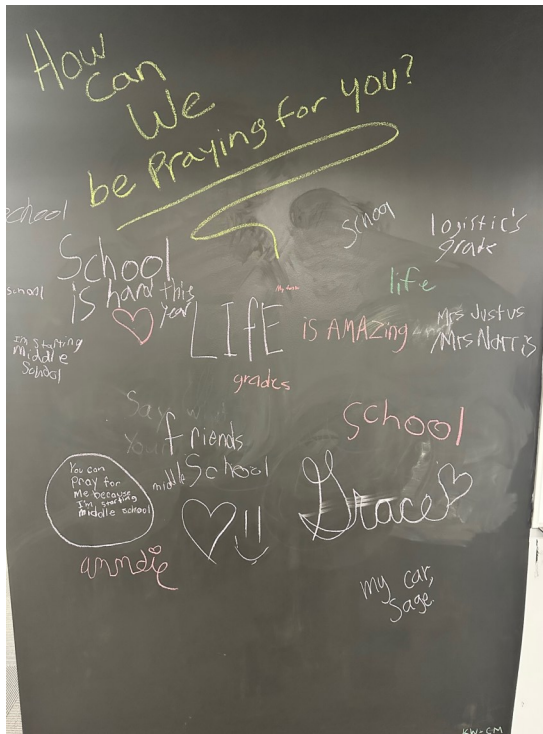 How
can
We
be Praying for you?
school
School
is hard this
year
school
I'm starting
middle
School
school
logistic's
grade
life
LIfE
is AMAzing
Mrs Justus
/Mrs Norris
grades
Say
You
friends
middle School
school
You can
Pray for
Me because
I'm starting
middle school
Grace
anndie
my car,
Sage
KW-CM